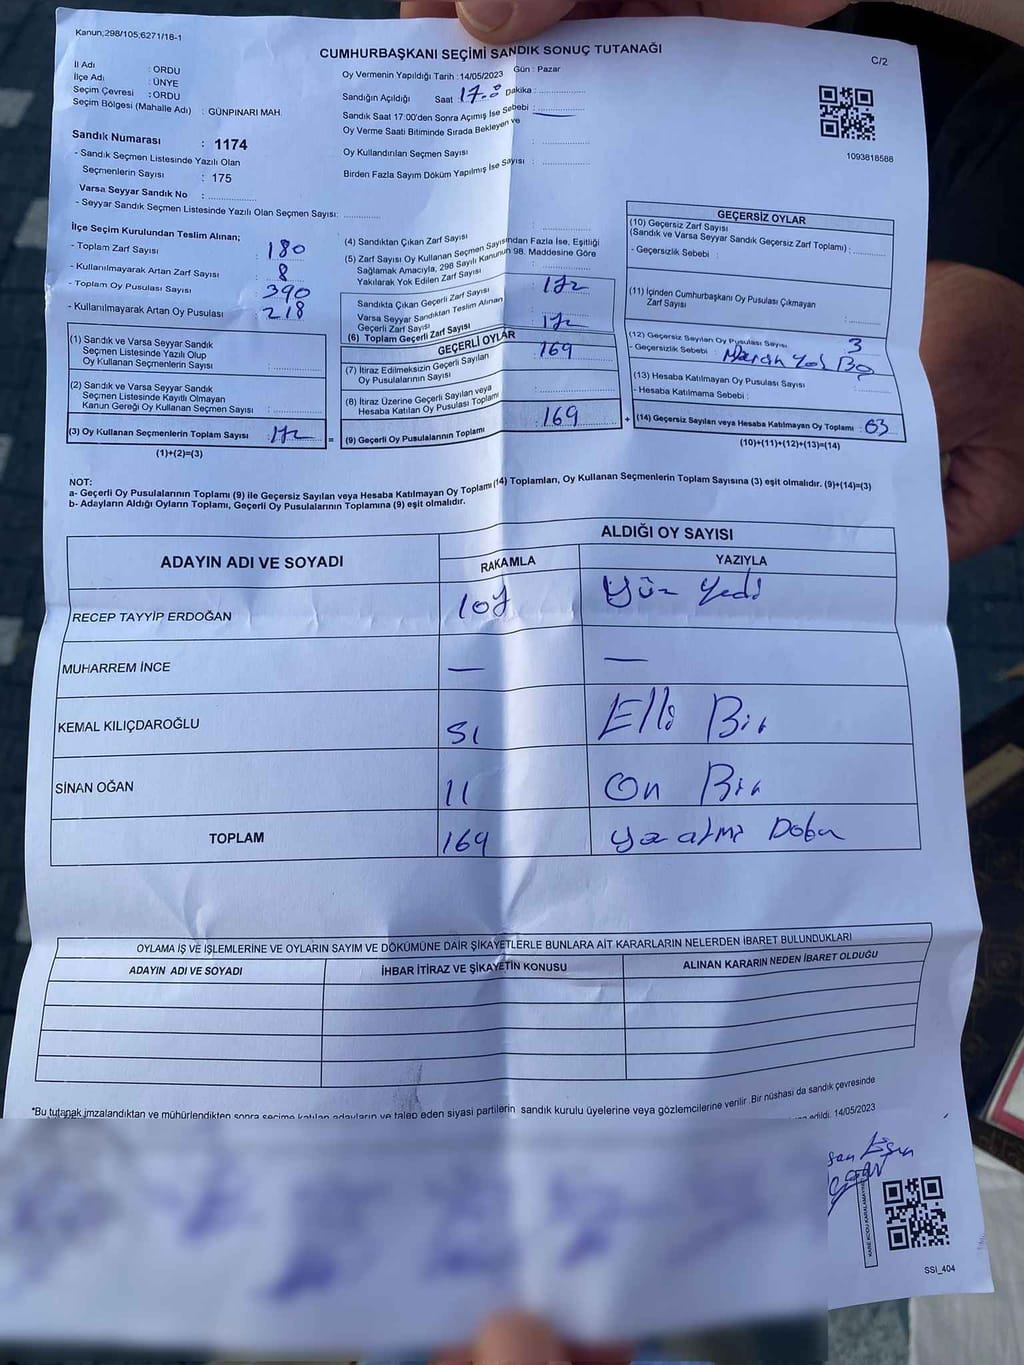 Kanun,298/105,6271/18-1
CUMHURBAŞKANI SEÇİMİ SANDIK SONUÇ TUTANAĞI
C/2
İl Adı : ORDU
İlçe Adı : ÜNYE
Seçim Çevresi : ORDU
Seçim Bölgesi (Mahalle Adı) : GÜNPINARI MAH.
Oy Vermenin Yapıldığı Tarih : 14/05/2023 Gün : Pazar
Sandığın Açıldığı Saat : Dakika :
Sandık Saat 17:00'den Sonra Açımış İse Sebebi :
Oy Verme Saati Bitiminde Sırada Bekleyen ve
Oy Kullandırılan Seçmen Sayısı :
Birden Fazla Sayım Döküm Yapılmış İse Sayısı :
1093818588
Sandık Numarası : 1174
- Sandık Seçmen Listesinde Yazılı Olan
Seçmenlerin Sayısı : 175
Varsa Seyyar Sandık No :
- Seyyar Sandık Seçmen Listesinde Yazılı Olan Seçmen Sayısı:
İlçe Seçim Kurulundan Teslim Alınan;
- Toplam Zarf Sayısı : 180
- Kullanılmayarak Artan Zarf Sayısı : 8
- Toplam Oy Pusulası Sayısı : 390
- Kullanılmayarak Artan Oy Pusulası : 218
(1) Sandık ve Varsa Seyyar Sandık
Seçmen Listesinde Yazılı Olup
Oy Kullanan Seçmenlerin Sayısı :
(2) Sandık ve Varsa Seyyar Sandık
Seçmen Listesinde Kayıtlı Olmayan
Kanun Gereği Oy Kullanan Seçmen Sayısı :
(3) Oy Kullanan Seçmenlerin Toplam Sayısı : 172
(1)+(2)=(3)
(4) Sandıktan Çıkan Zarf Sayısı :
(5) Zarf Sayısı Oy Kullanan Seçmen Sayısından Fazla İse, Eşitliği
Sağlamak Amacıyla, 298 Sayılı Kanunun 98. Maddesine Göre
Yakılarak Yok Edilen Zarf Sayısı :
Sandıkta Çıkan Geçerli Zarf Sayısı : 172
Varsa Seyyar Sandıktan Teslim Alınan
Geçerli Zarf Sayısı :
(6) Toplam Geçerli Zarf Sayısı : 172
GEÇERLİ OYLAR
(7) İtiraz Edilmeksizin Geçerli Sayılan
Oy Pusulalarının Sayısı : 169
(8) İtiraz Üzerine Geçerli Sayılan veya
Hesaba Katılan Oy Pusulası Toplamı :
= (9) Geçerli Oy Pusulalarının Toplamı : 169 +
GEÇERSİZ OYLAR
(10) Geçersiz Zarf Sayısı
(Sandık ve Varsa Seyyar Sandık Geçersiz Zarf Toplamı) :
- Geçersizlik Sebebi :
(11) İçinden Cumhurbaşkanı Oy Pusulası Çıkmayan
Zarf Sayısı :
(12) Geçersiz Sayılan Oy Pusulası Sayısı : 3
- Geçersizlik Sebebi :
(13) Hesaba Katılmayan Oy Pusulası Sayısı :
- Hesaba Katılmama Sebebi :
(14) Geçersiz Sayılan veya Hesaba Katılmayan Oy Toplamı : 03
(10)+(11)+(12)+(13)=(14)
NOT:
a- Geçerli Oy Pusulalarının Toplamı (9) ile Geçersiz Sayılan veya Hesaba Katılmayan Oy Toplamı (14) Toplamları, Oy Kullanan Seçmenlerin Toplam Sayısına (3) eşit olmalıdır. (9)+(14)=(3)
b- Adayların Aldığı Oyların Toplamı, Geçerli Oy Pusulalarının Toplamına (9) eşit olmalıdır.
ADAYIN ADI VE SOYADI
ALDIĞI OY SAYISI
RAKAMLA YAZIYLA
RECEP TAYYİP ERDOĞAN 107 Yüz Yedi
MUHARREM İNCE — —
KEMAL KILIÇDAROĞLU 51 Elli Bir
SİNAN OĞAN 11 On Bir
TOPLAM 169
OYLAMA İŞ VE İŞLEMLERİNE VE OYLARIN SAYIM VE DÖKÜMÜNE DAİR ŞİKAYETLERLE BUNLARA AİT KARARLARIN NELERDEN İBARET BULUNDUKLARI
ADAYIN ADI VE SOYADI İHBAR İTİRAZ VE ŞİKAYETİN KONUSU ALINAN KARARIN NEDEN İBARET OLDUĞU
*Bu tutanak imzalandıktan ve mühürlendikten sonra seçime katılan adayların ve talep eden siyasi partilerin sandık kurulu üyelerine veya gözlemcilerine verilir. Bir nüshası da sandık çevresinde
edildi. 14/05/2023
KARE KODU KARALAMAYINIZ
SSI_404